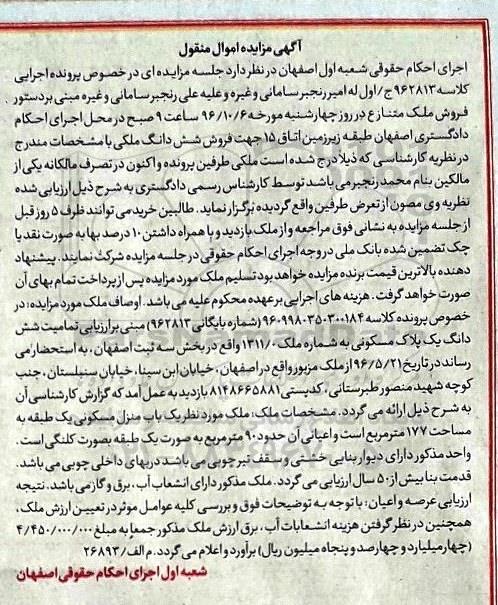 آگهی مزایده اموال منقول
اجرای احکام حقوقی شعبه اول اصفهان در نظر دارد جلسه مزایده ای در خصوص پرونده اجرایی
کلاسه ۹۶۲۸۱۳ ج/ اول له امیر رنجبر سامانی و غیره و علیه علی رنجبر سامانی و غیره مبنی بر دستور
فروش ملک متنازع در روز چهارشنبه مورخه ۹۶/۱۰/۶ ساعت ۹ صبح در محل اجرای احکام
دادگستری اصفهان طبقه زیرزمین اتاق ۱۵ جهت فروش شش دانگ ملکی با مشخصات مندرج
در نظریه کارشناسی که ذیلا درج شده است ملکی طرفین پرونده و اکنون در تصرف مالکانه یکی از
مالکین بنام محمد رنجبر می باشد توسط کارشناس رسمی دادگستری به شرح ذیل ارزیابی شده
نظریه وی مصون از تعرض طرفین واقع گردیده برگزار نماید. طالبین خرید می توانند ظرف ۵ روز قبل
از جلسه مزایده به نشانی فوق مراجعه و از ملک بازدید و با همراه داشتن ۱۰ درصد بها به صورت نقد یا
چک تضمین شده بانک ملی در وجه اجرای احکام حقوقی در جلسه مزایده شرکت نمایند. پیشنهاد
دهنده بالاترین قیمت برنده مزایده خواهد بود تسلیم ملک مورد مزایده پس از پرداخت تمام بهای آن
صورت خواهد گرفت. هزینه های اجرایی بر عهده محکوم علیه می باشد. اوصاف ملک مورد مزایده: در
خصوص پرونده کلاسه ۹۶۰۹۹۸۰۳۵۰۳۰۰۱۸۴ (شماره بایگانی ۹۶۲۸۱۳) مبنی بر ارزیابی تمامیت شش
دانگ یک پلاک مسکونی به شماره ملک ۱۳۱۱/۰ واقع در بخش سه ثبت اصفهان، به استحضار می
رساند در تاریخ ۹۶/۵/۲۱ از ملک مزبور واقع در اصفهان، خیابان ابن سینا، خیابان سنبلستان، جنب
کوچه شهید منصور طبرستانی، کدپستی ۸۱۴۸۶۶۵۸۸۱ بازدید به عمل آمد که گزارش کارشناسی آن
به شرح ذیل ارائه می گردد. مشخصات ملک: ملک مورد نظر یک باب منزل مسکونی یک طبقه به
مساحت ۱۷۷ مترمربع است و اعیانی آن حدود ۹۰ مترمربع به صورت یک طبقه بصورت کلنگی است.
واحد مذکور دارای دیوار بنایی خشتی و سقف تیر چوبی می باشد دربهای داخلی چوبی می باشد.
قدمت بنا بیش از ۵۰ سال ارزیابی می گردد. ملک مذکور دارای انشعاب آب، برق و گاز می باشد. نتیجه
ارزیابی عرصه و اعیان: با توجه به توضیحات فوق و بررسی کلیه عوامل موثر در تعیین ارزش ملک،
همچنین در نظر گرفتن هزینه انشعابات آب، برق ارزش ملک مذکور جمعا به مبلغ ۴/۴۵۰/۰۰۰/۰۰۰
(چهار میلیارد و چهارصد و پنجاه میلیون ریال) برآورد و اعلام می گردد. م الف/ ۲۶۸۹۳
شعبه اول اجرای احکام حقوقی اصفهان